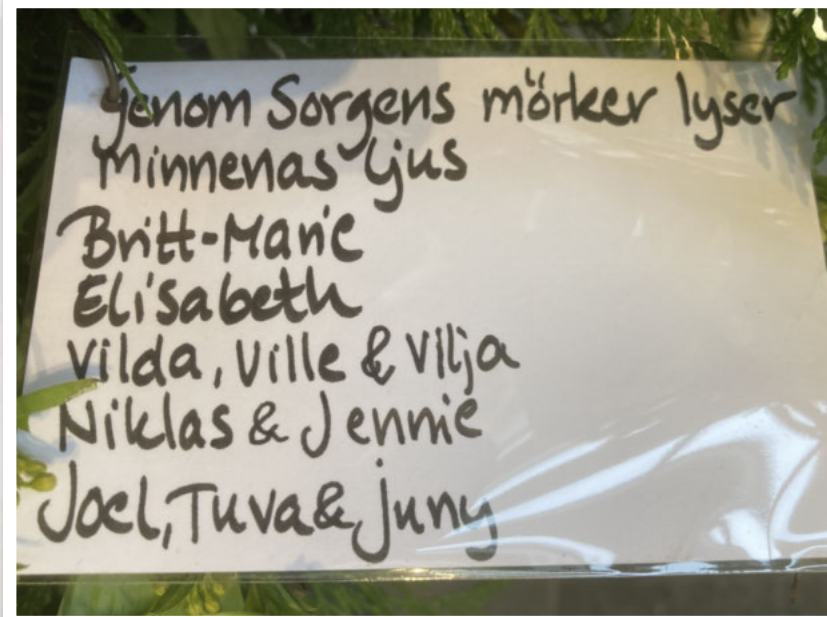 Genom Sorgens mörker lyser
Minnenas ljus
Britt-Marie
Elisabeth
Vilda, Ville & Vilja
Niklas & Jennie
Joel, Tuva & juny